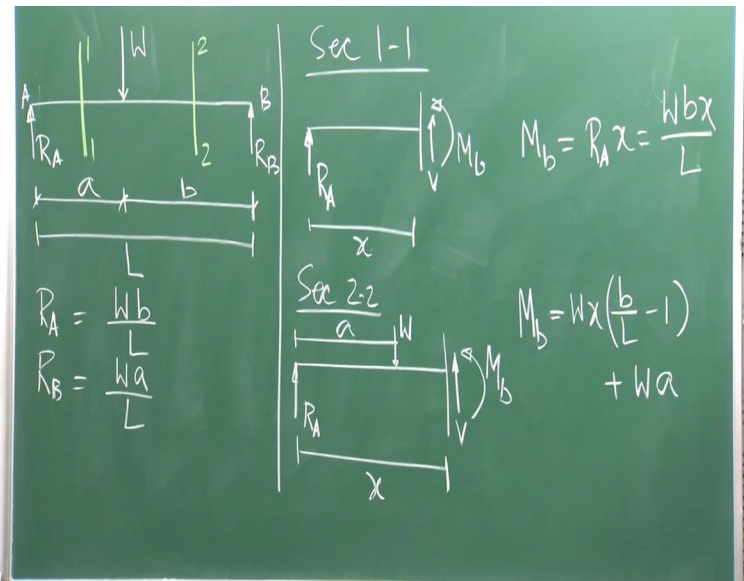 1 W 2
A B
R_A 1 2 R_B
a b
L
R_A = Wb/L
R_B = Wa/L
Sec 1-1
R_A V M_b
x
M_b = R_A x = Wbx/L
Sec 2-2
a W
R_A V M_b
x
M_b = Wx(b/L - 1)
+ Wa